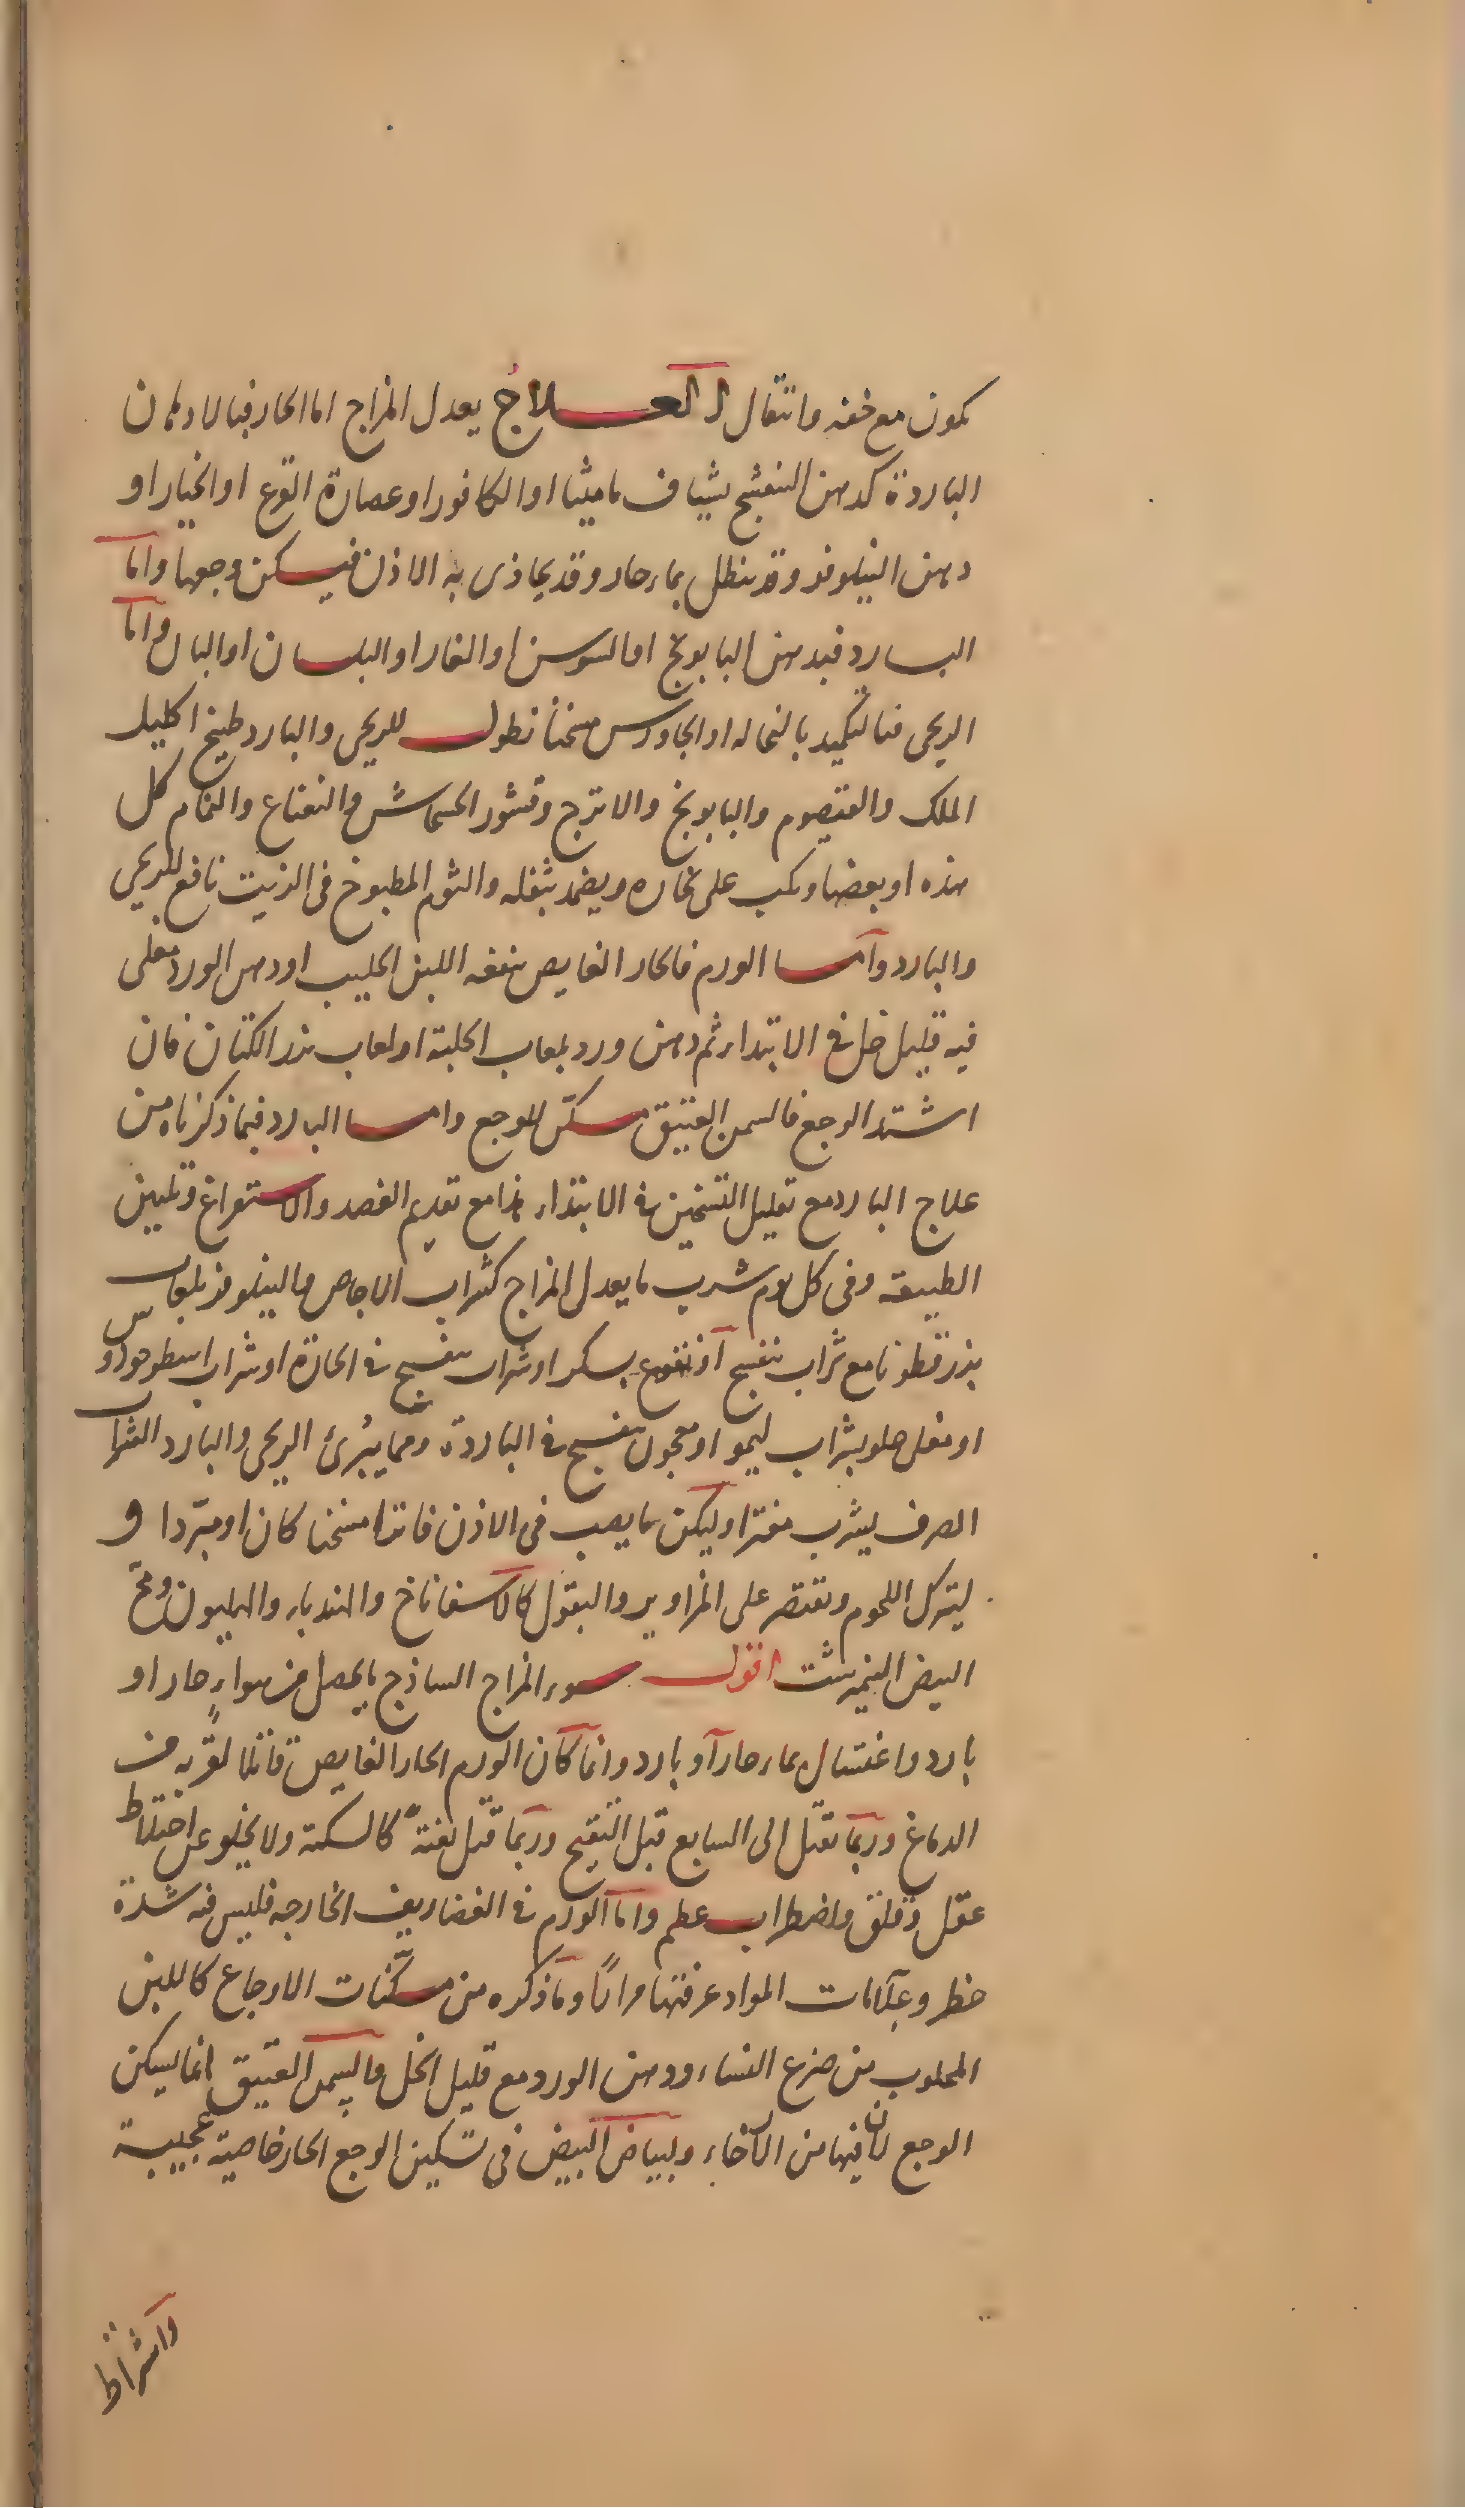 يكون مع خفة وانتقال ال العلاج يعدل المزاج اما الحار فبالادهان
الباردة كدهن البنفسج بشياف ماميثا او الكافور او عصارة القرع او الخيار او
دهن النيلوفر وقد ينطل بماء حار وقد يحاذى به الاذن فيسكن وجعها واما
البارد فبدهن البابونج او السوسن او الغار او البلسان او البان واما
الريحى فبالتكميد بالنخاله او الجاورس مسخنا نطول للريحى والبارد طبيخ اكليل
الملك والقيصوم والبابونج والاترج وقشور الخشخاش والنعناع والنمام كل
هذه او بعضها ويكب على بخاره ويضمد بثفله والثوم المطبوخ فى الزيت نافع للريحى
والبارد واما الورم فالحار الغايص ينفعه اللبن الحليب او دهن الورد مغلى
فيه قليل خل فى الابتداء ثم دهن ورد بلعاب الحلبة او لعاب بزر الكتان فان
اشتد الوجع فالسمن العتيق مسكن للوجع واما البارد فبما ذكرناه من
علاج البارد مع تقليل التسخين فى الابتداء هذا مع تقديم الفصد والاستفراغ وتليين
الطبيعة وفى كل يوم شرب ما يعدل المزاج كشراب الاجاص والنيلوفر بلعاب
بزر قطونا مع شراب بنفسج او نقوع بسكر او شراب بنفسج فى الحارة او شراب اسطوخودوس
او مغلى حلو بشراب ليمو او معجون بنفسج فى الباردة ومما يبرئ الريحى والبارد الشراب
الصرف يشرب مفترا وليكن ما يصب فى الاذن فاترا مسخنا كان او مبردا و
ليترك اللحوم ويقتصر على المزاوير والبقول كالاسفاناخ والهندباء والهليون ومح
البيض النيمبرشت اقول سوء المزاج الساذج ما يحصل من هواء حار او
بارد واغتسال بماء حار او بارد وانما كان الورم الحار الغايص قاتلا لقربه من
الدماغ وربما يقتل الى السابع قبل التقيح وربما قتل بغتة كالسكتة ولا يخلو عن اختلاط
عقل وقلق واضطراب عظيم واما الورم فى الغضاريف الخارجه فليس فيه شدة
خطر وعلامات المواد عرفتها مرارًا وما ذكره من مسكنات الاوجاع كاللبن
المحلوب من ضرع النساء ودهن الورد مع قليل الخل والسمن العتيق انما يسكن
الوجع لان فيها من الارخاء ولبياض البيض فى تسكين الوجع الحار خاصية عجيبة